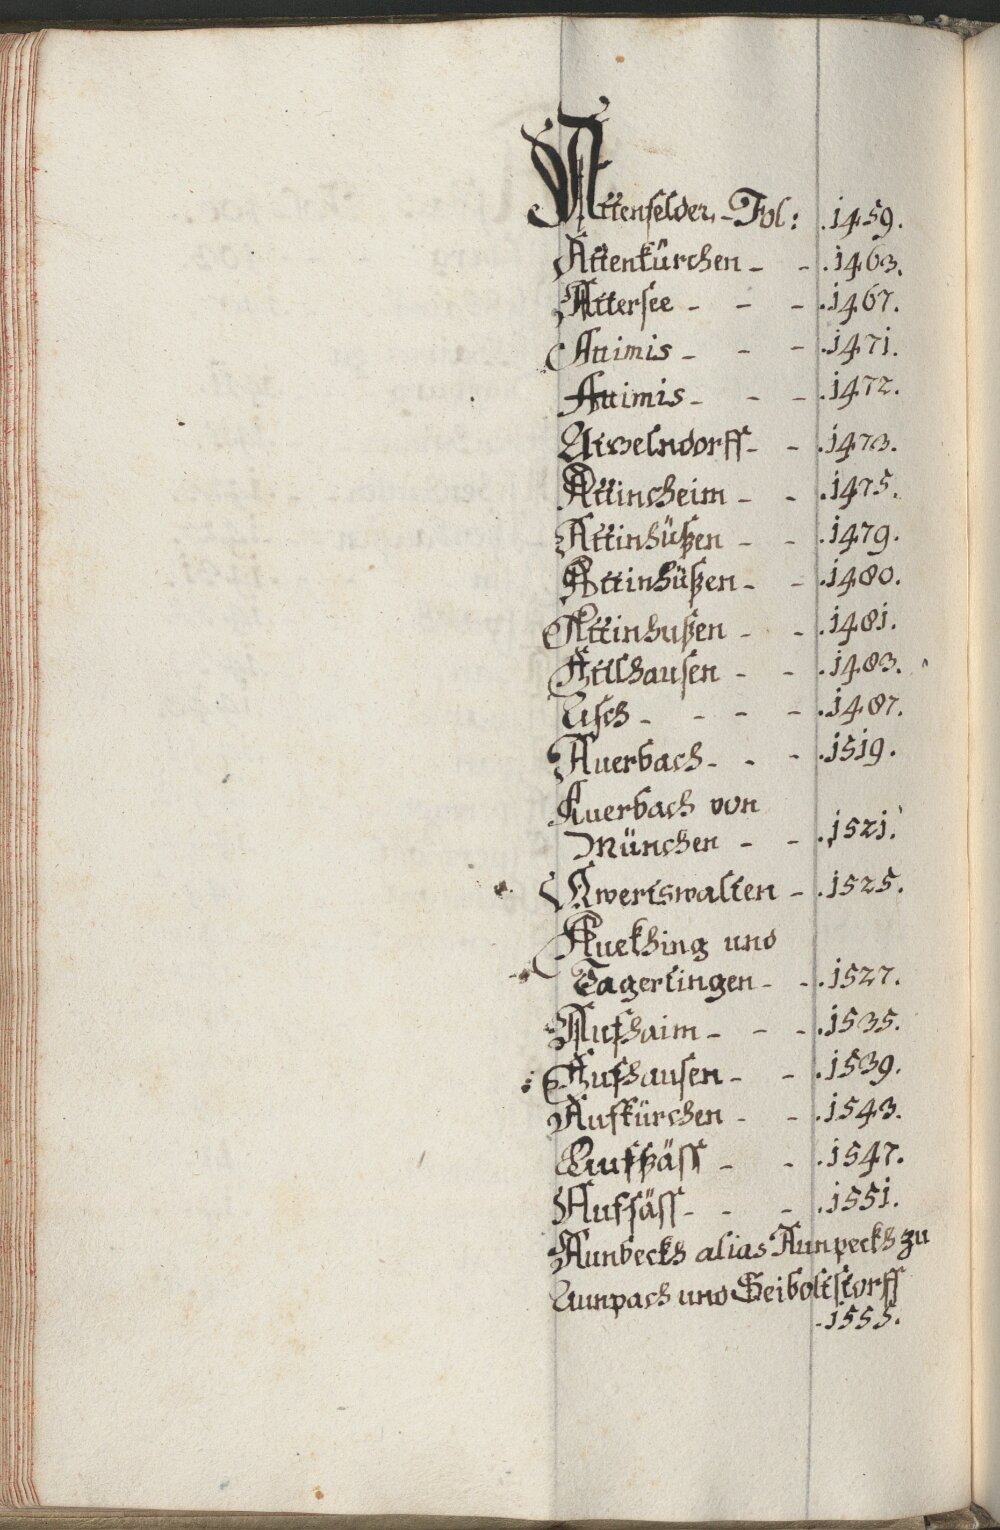 Attenfelder, - Fol: .1459.
Attenkürchen - - .1463.
Attersee - - - .1467.
Attimis - - - .1471.
Attimis - - - .1472.
Atwelndorff - - .1473.
Attincheim - - .1475.
Attinhüßen - - .1479.
Attinhüßen - - .1480.
Attinhußen - - .1481.
Atlhausen - - .1483.
Atsch - - - - .1487.
Auerbach - - - .1519.
Auerbach von
München - - .1521.
Awertswalten - .1525.
Auekhing und
Tagertingen - - .1527.
Aufhaim - - - .1535.
Aufhausen - - .1539.
Aufkürchen - - .1543.
Aufsäss - - .1547.
Aufsäss - - - .1551.
Aunbeckh alias Aunpeckh zu
Aunpach und Seiboltstorff
.1555.